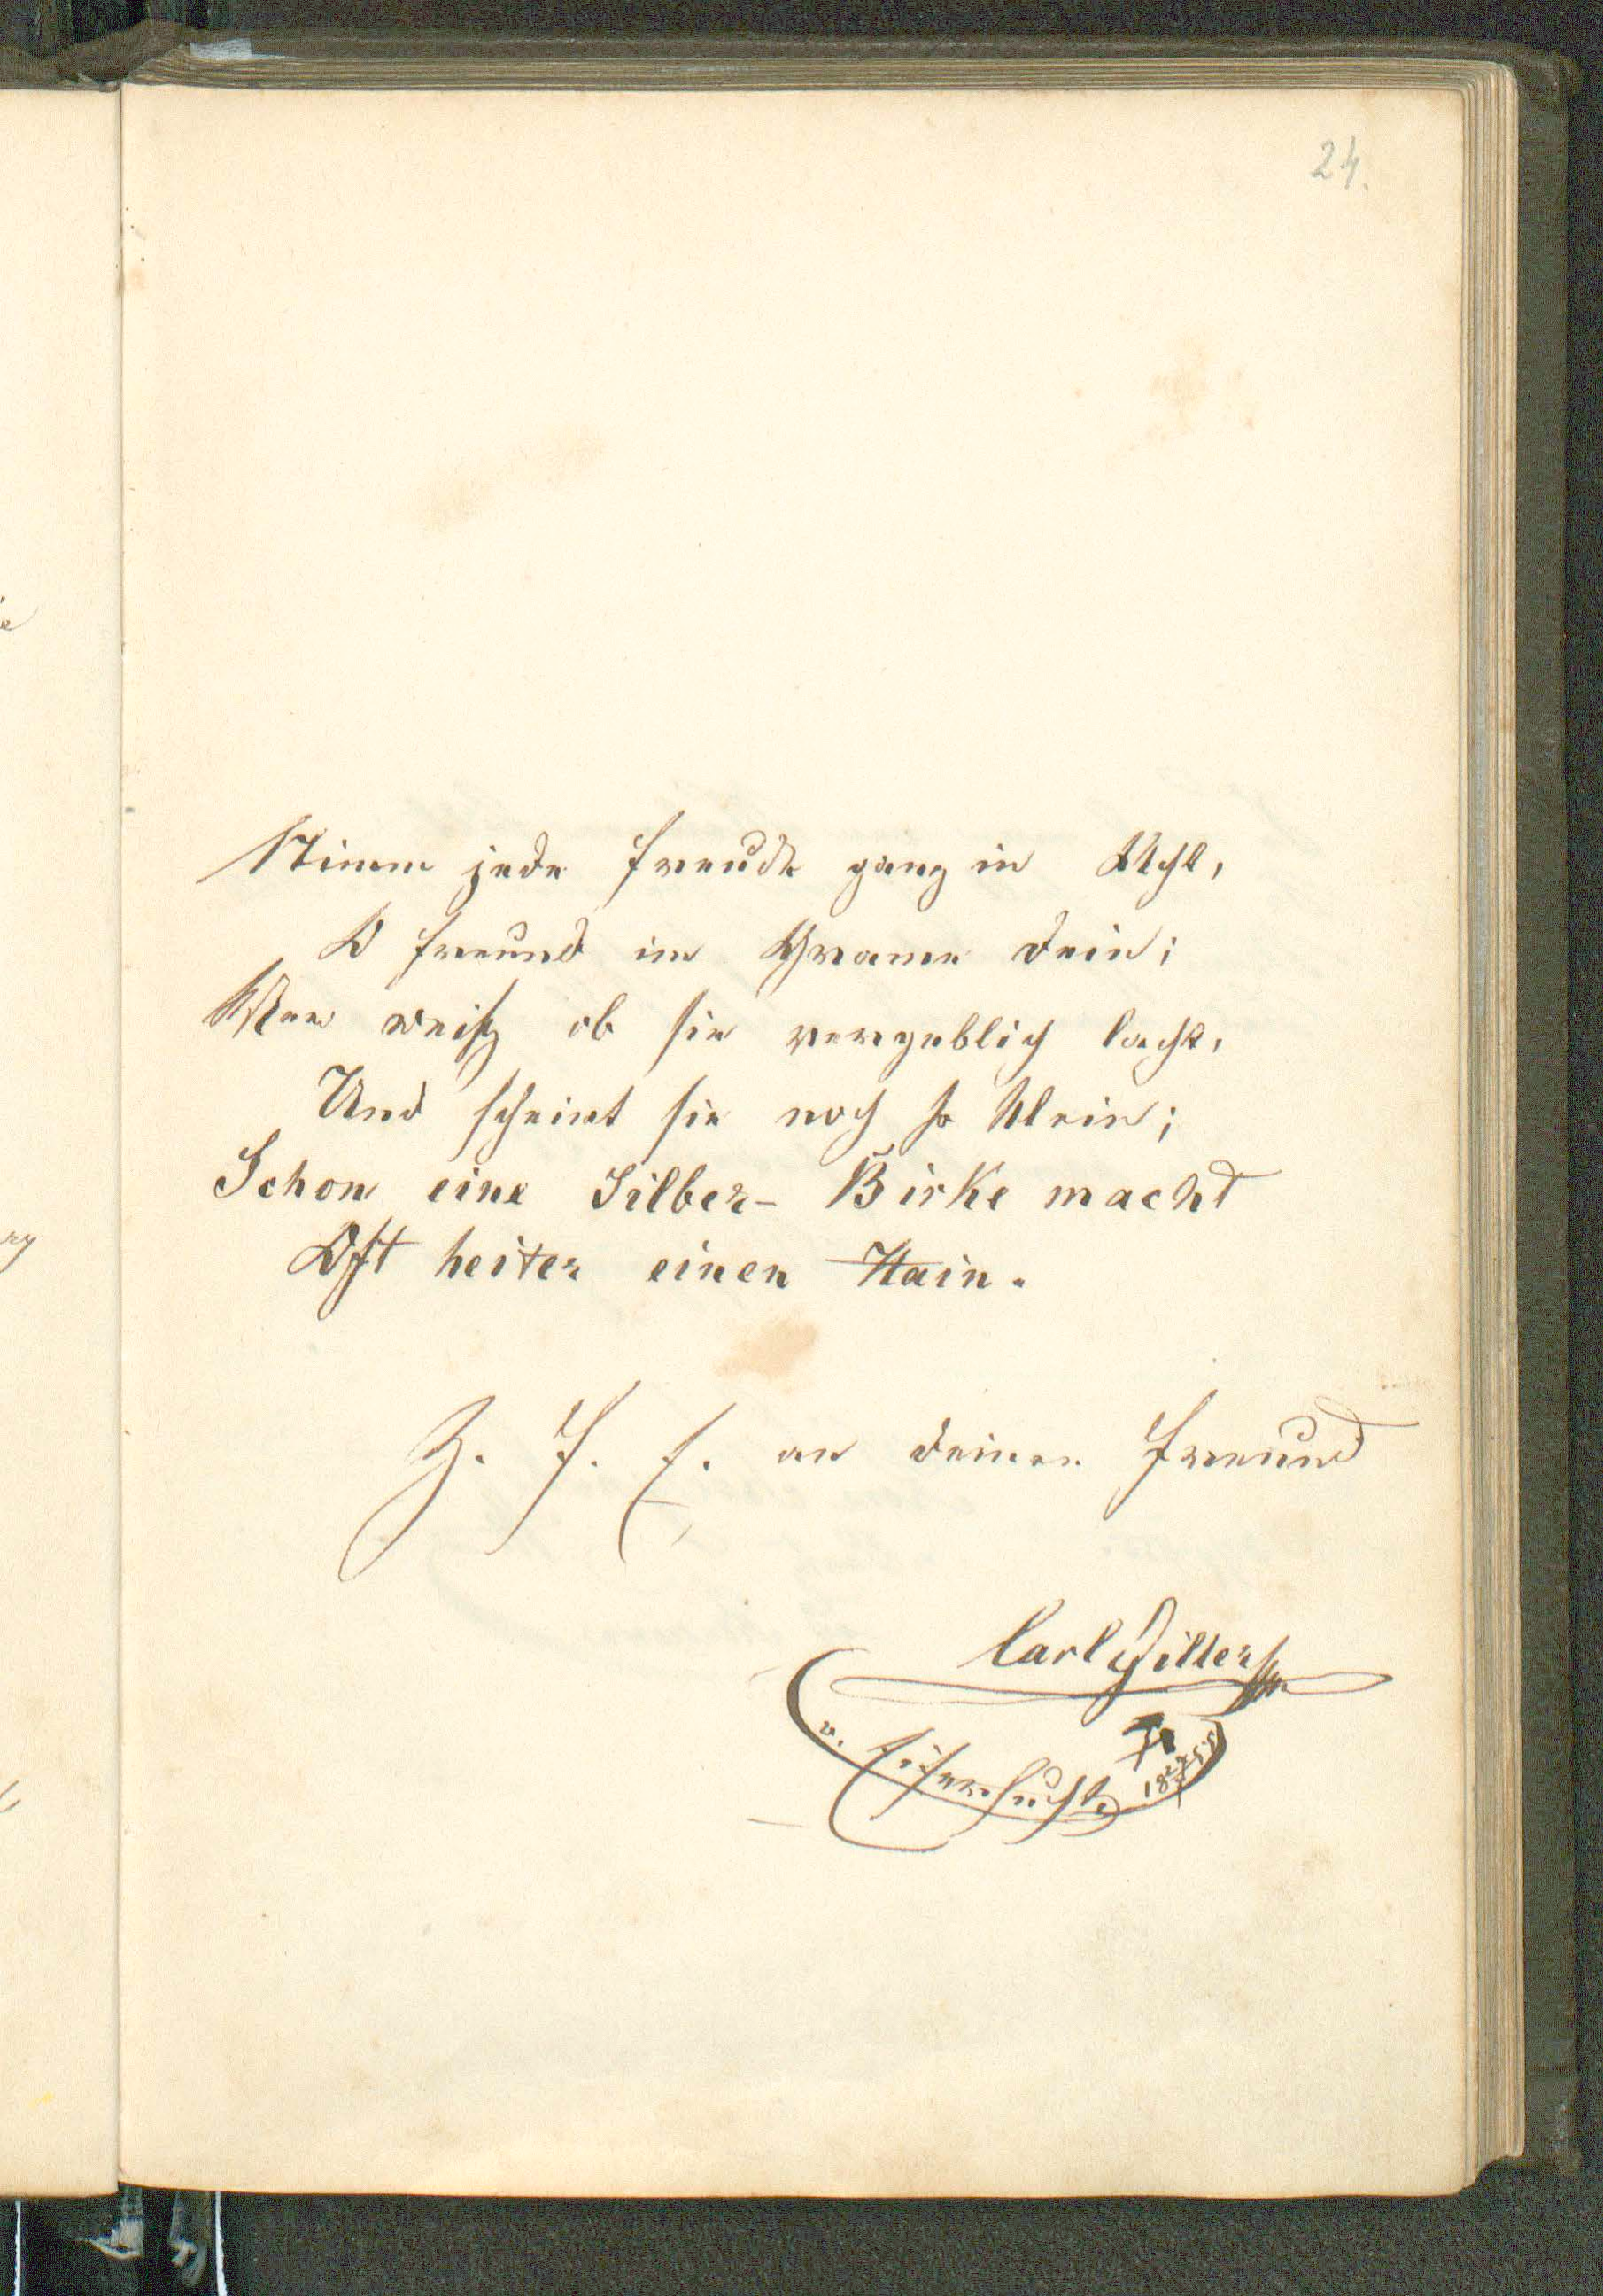 24.
Nimm jede Freude ganz in Acht,
O Freund im Grame dein;
Wer weiß ob sie vergeblich lacht,
Und scheint sie noch so klein;
Schon eine Silber- Birke macht
Oft heiter einen Hain.
Z. F. E. an deinen Freund
Carl Hiller
v. Eisenhuth